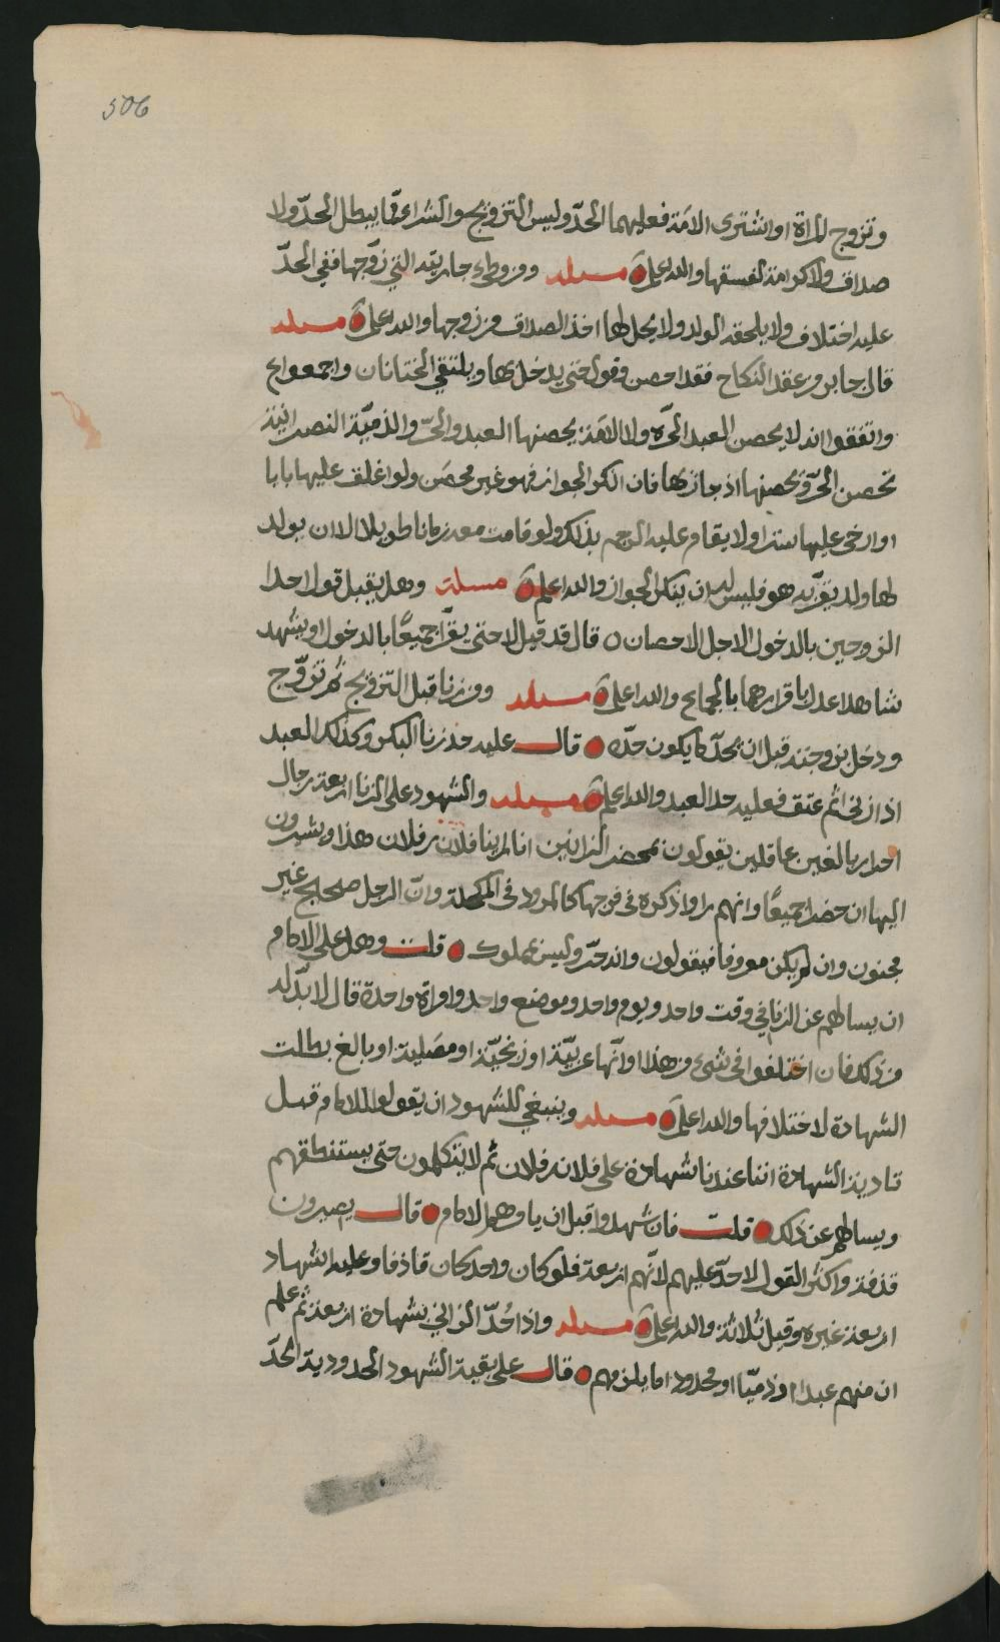 506
وتزوج المراة او اشترى الامة فعليهما الحدّ وليس التزويج والشراء ممّا يبطل الحدّ ولا
صداق ولا كرامة لفسقها والله اعلم مسئلة ومن وطىء جاريته التي زوّجها ففي الحدّ
عليه اختلاف ولا يلحقه الولد ولا يحل لها اخذ الصداق من زوجها والله اعلم مسئلة
قال جابر من عقد النكاح فقد احصن وقول حتى يدخل بها ويلتقي الختانان واجمعوا
واتفقوا انه لا يحصن العبد الحرّه ولا الامة يحصنها العبد والحرّ والذميّة النصرانيّة
تحصن الحرّ ويحصنها اذ جاز بها فان انكر الجواز فهو غير محصَن ولو اغلق عليها بابا
او ارخى عليها سترا ولا يقام عليه الرجم بذلك ولو قامت معه زمانا طويلا الا ان يولد
لها ولد يقرّ به هو فليس له ان ينكر الجواز والله اعلم مسئلة وهل يقبل قول احد
الزوجين بالدخول لاجل الاحصان قال قد قيل لا حتى يقرّا جميعًا بالدخول او يشهد
شاهدا عدل باقرارهما بالجماع والله اعلم مسئلة ومن زنا قبل التزويج ثم تزوّج
ودخل بزوجته قبل ان يحدّ ما يكون حدّه قال عليه حد زنا البكر وكذلك العبد
اذا زنى ثم عتق فعليه حد العبد والله اعلم مسئلة والشهود على الزنا اربعة رجال
احرار بالغين عاقلين يقولون بمحضر الزانيين انا راينا فلان بن فلان هذا ويشيرون
اليها ان حضرا جميعًا وانهم راوا ذكره في فرجها كالمرود في المكحلة وانّ الرجل صحيح غير
مجنون وان لم يكن معروفا فيقولون وانه حرّ وليس بمملوك قلت وهل على الامام
ان يسالهم عن الزنا في وقت واحد ويوم واحد وموضع واحد وامراة واحدة قال لا بدّ له
من ذلك فان اختلفوا في شىء من هذا او انّها عربيّة او زنجيّة او مصَلية او بالغ بطلت
الشهادة لاختلافها والله اعلم مسئلة وينبغي للشهود ان يقولوا للامام قبل
تادية الشهادة اننا عندنا شهادة على فلان بن فلان ثم لا يتكلمون حتى يستنطقهم
ويسالهم عن ذلك قلت فان شهدوا قبل ان يامرهم الامام قال يصيرون
قذفة واكثر القول لا حدّ عليهم لانّهم اربعة فلو كان واحد كان قاذفا وعليه اشهاد
اربعة غيره وقيل ثلاثة والله اعلم مسئلة واذا حُدّ الزاني بشهادة اربعة ثم علم
ان منهم عبدا او ذميّا او محدودا ما يلزمهم قال على بقية الشهود الحد ودية الحدّ